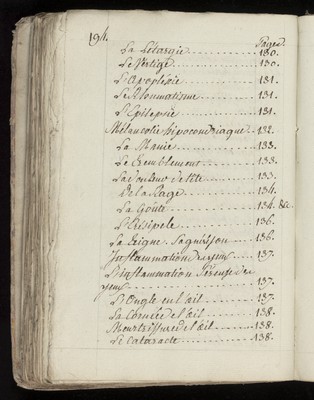 194.
Pages.
La Létargie ........... 130.
Le Vertige ........... 130.
L'apoplexie ........... 131.
Le Rhumatisme ........... 131.
L'Epilepsie ........... 131.
Mélancolie hipocondriaque .. 132.
La Manie ........... 133.
Le Tremblement ........... 133.
La douleur de tête ........... 133.
De la Rage ........... 134.
La Goute ........... 134. &c.
L'Erésipele ........... 136.
La teigne. Sa guérison ........... 136.
Inflammation des yeux ........... 137.
L'inflammation séreuse des
yeux ........... 137.
L'Ongle en l'œil ........... 137.
La l'œil ........... 138.
Meurtrissure de l'œil ........... 138.
Le Cataracte ........... 138.